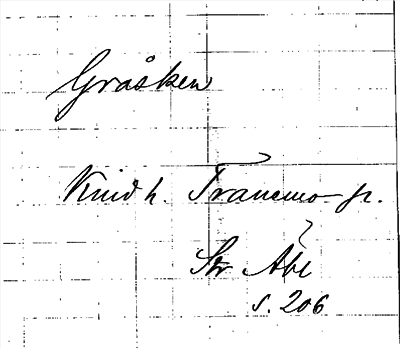 Gråsken
Kind h. Tranemo fr.
Str Åbe
s. 206